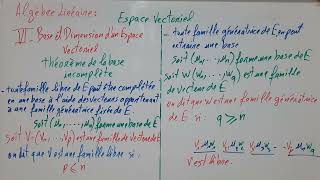 Algèbre Linéaire:
Espace Vectoriel
VI - Base et Dimension d'un Espace
Vectoriel
théorème de la base
incomplète
- toute famille libre de E peut être complétée
en une base à l'aide des vecteurs appartenant
à une famille génératrice fixée de E.
Soit (u₁, ..., uₙ) forme une base de E
Soit V=(V₁, ..., Vp) est une famille de vecteurs de E
on dit que V est une famille libre si
p ≤ n
- toute famille génératrice de E, on peut
extraire une base
Soit (u₁, ..., uₙ) forme une base de E
Soit W (W₁, ..., Wq) est une famille
de vecteurs de E
on dit que W est une famille génératrice
de E si q ≥ n
V est libre.